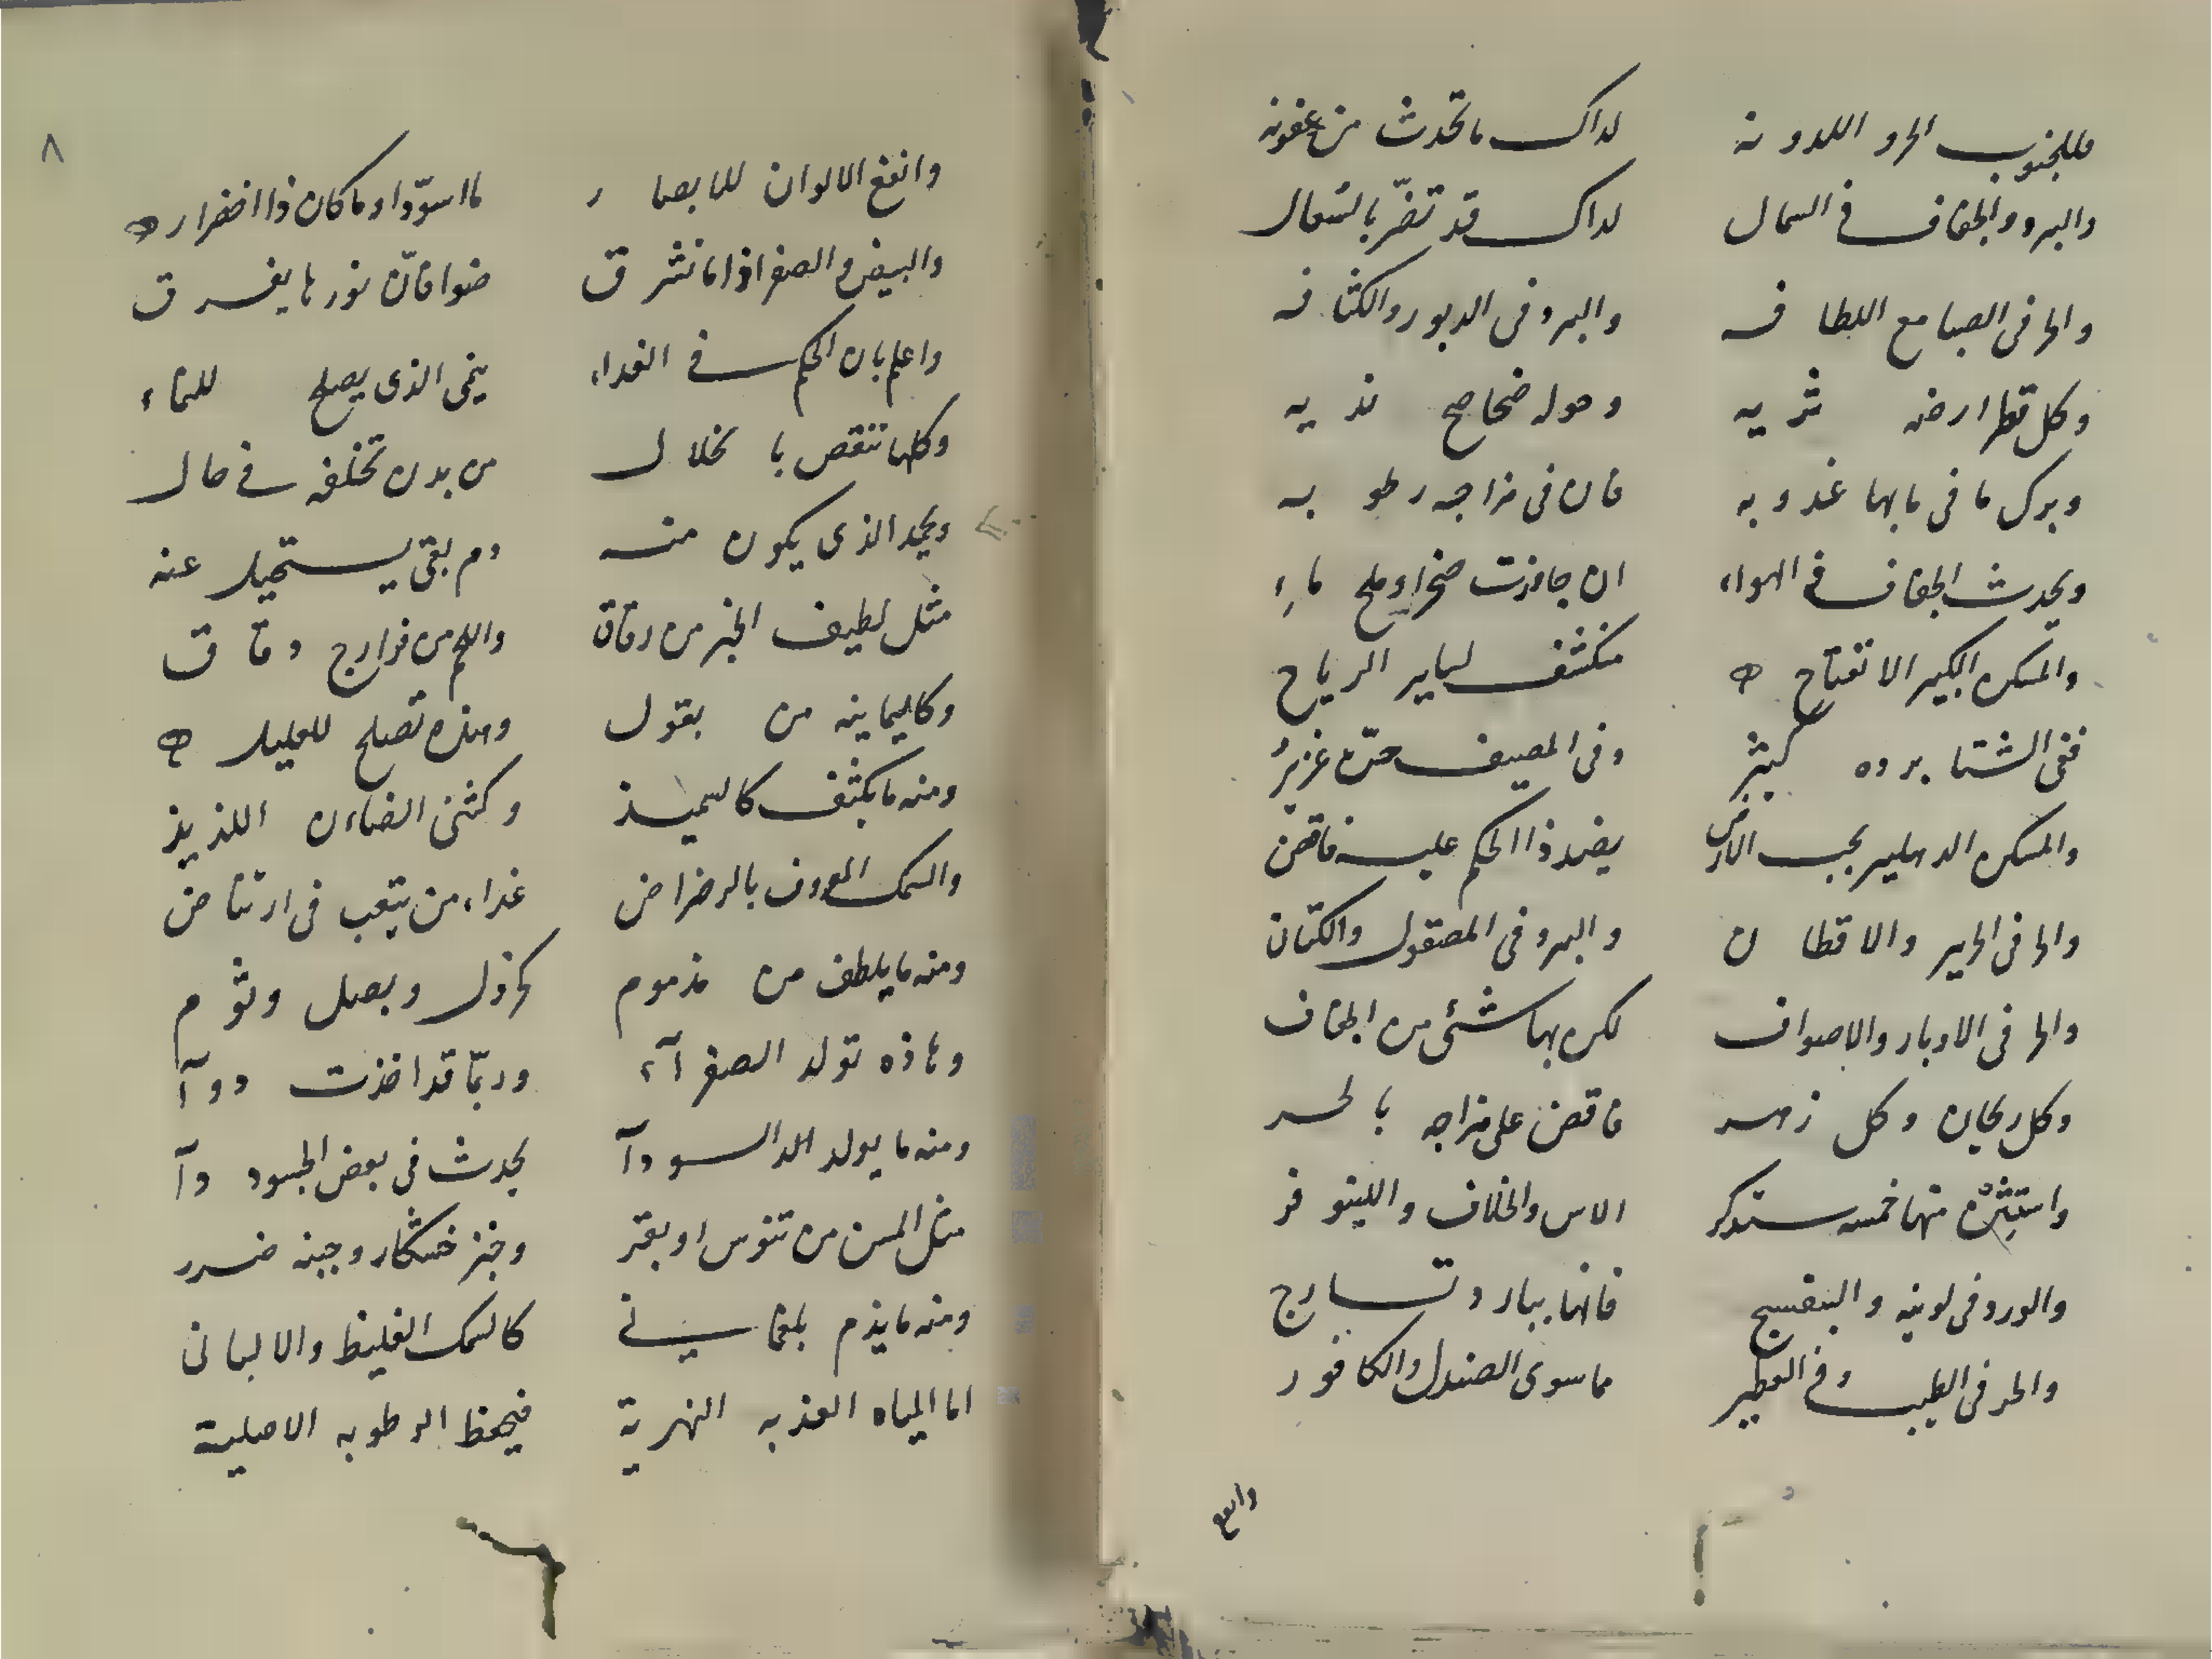 وللجنوب الحر واللدونه لذاك ما تحدث من عفونه
والبرد والجفاف في الشمال لذاك قد تضرّ بالسّعال
والحر في الصبا مع اللطافه والبرد في الدبور والكثافه
وكل قطر ارضه ثريه وحوله ضحاضح نديه
وبرك ما في مايها عذوبه فان في مزاجه رطوبه
ويحدث الجفاف في الهواء ان جاوزت صخرا وملح ماء
والمسكن الكبير الانفتاح منكشف لساير الرياح
ففي الشتا برده كثير وفي المصيف حرّه غزير
والمسكن الدهليز بجنب الارض بضد ذا الحكم عليه فاقض
والحر في الحرير والاقطان والبرد في المصقول والكتان
والحر في الاوبار والاصواف لكن بها شئ من الجفاف
وكل ريحان وكل زهر فاقض على مزاجه بالحر
واستثن منها خمسه ستذكر الاس والخلاف والنينوفر
والورد في لونيه والبنفسج فانها ببارد تسارج
والحر في الطيب وفي العطير ما سوى الصندل والكافور
وانفع
٨
وانفع الالوان للابصار ما اسوّد او ما كان ذا اخضرار
والبيض والصفر اذا ما تشرق ضوا فانّ نورها يفرق
واعلم بان الحكم في الغداء ينحى الذي يصلح للنماء
وكلها تنقص بانحلال من بدن تخلفه في حال
ويحمد الذي يكون منه دم بقي يستحيل عنه
مثل لطيف الخبز من رقاق واللحم من فرارج دقاق
وكاليمانيه من بقول وهذه تصلح للعليل
ومنه ما يكثف كالسميذ وكثني الضاان اللذيذ
والسمك المعروف بالرضراض غداء من يتعب في ارتياض
ومنه ما يلطف من مذموم كخردل وبصل وثوم
وهاذه تولد الصفرآء وربّما قد اخذت دوآ
ومنه ما يولد السودآ يحدث في بعض الجسود دآ
مثل المسن من تيوس او بقر وخبز خشكار وجبنه ضرر
ومنه ما يذم بلغماني كالسمك الغليظ والالباني
اما المياه العذبه النهرية فيحفظ الرطوبه الاصلية